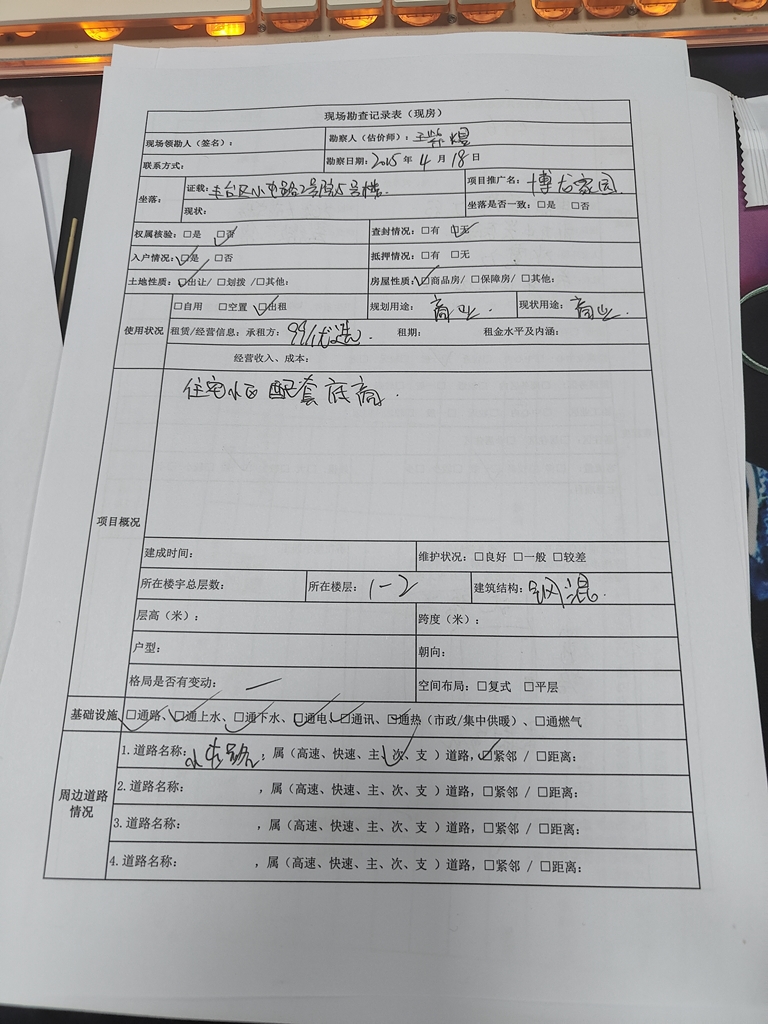 现场勘查记录表（现房）
现场领勘人（签名）： 勘察人（估价师）：
联系方式： 勘察日期：2025 年 4 月 18 日
坐落： 证载：丰台区小屯路2号院5号楼 项目推广名：博龙家园
现状： 坐落是否一致：□是 □否
权属核验：□是 □否 查封情况：□有 □无
入户情况：□是 □否 抵押情况：□有 □无
土地性质：□出让/ □划拨 /□其他： 房屋性质：□商品房/ □保障房/ □其他：
使用状况 □自用 □空置 □出租 规划用途：商业. 现状用途：商业.
租赁/经营信息：承租方：99优选. 租期： 租金水平及内涵：
经营收入、成本：
项目概况 住宅小区配套底商.
建成时间： 维护状况：□良好 □一般 □较差
所在楼宇总层数： 所在楼层：1-2 建筑结构：钢混.
层高（米）： 跨度（米）：
户型： 朝向：
格局是否有变动：— 空间布局：□复式 □平层
基础设施 □通路、□通上水、□通下水、□通电、□通讯、□通热（市政/集中供暖）、□通燃气
周边道路情况 1.道路名称：小屯路，属（高速、快速、主、次、支 ）道路，□紧邻 / □距离：
2.道路名称： ，属（高速、快速、主、次、支 ）道路，□紧邻 / □距离：
3.道路名称： ，属（高速、快速、主、次、支 ）道路，□紧邻 / □距离：
4.道路名称： ，属（高速、快速、主、次、支 ）道路，□紧邻 / □距离：